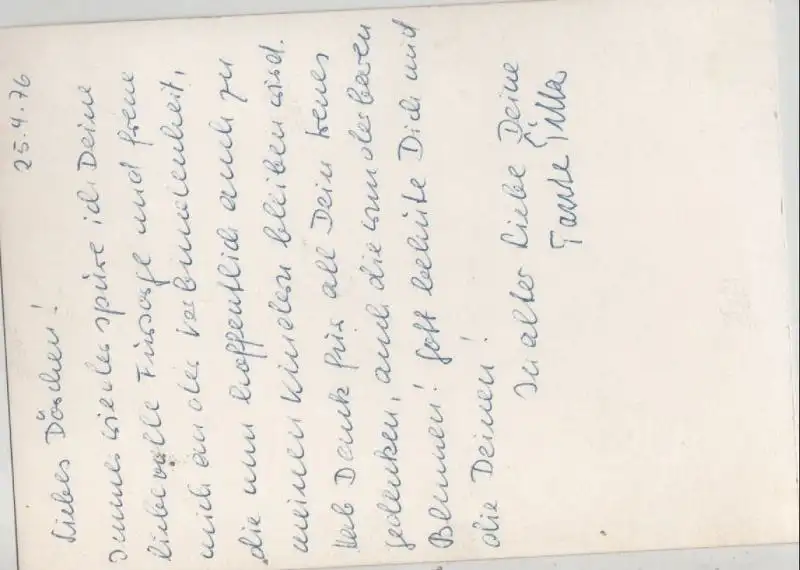 25.4.76
Liebes Döschen!
Immer wieder spüre ich Deine
liebevolle Fürsorge und freue
mich an der Verbundenheit,
die nun hoffentlich auch zu
meinen Kindern bleiben wird.
Hab Dank für all Dein treues
gedenken, auch die wunderbaren
Blumen! Gott behüte Dich und
die Deinen!
In alter Liebe Deine
Tante Gilla